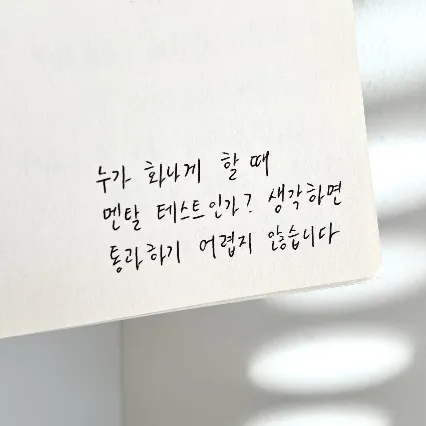 누가 화나게 할 때
멘탈 테스트인가? 생각하면
통과하기 어렵지 않습니다